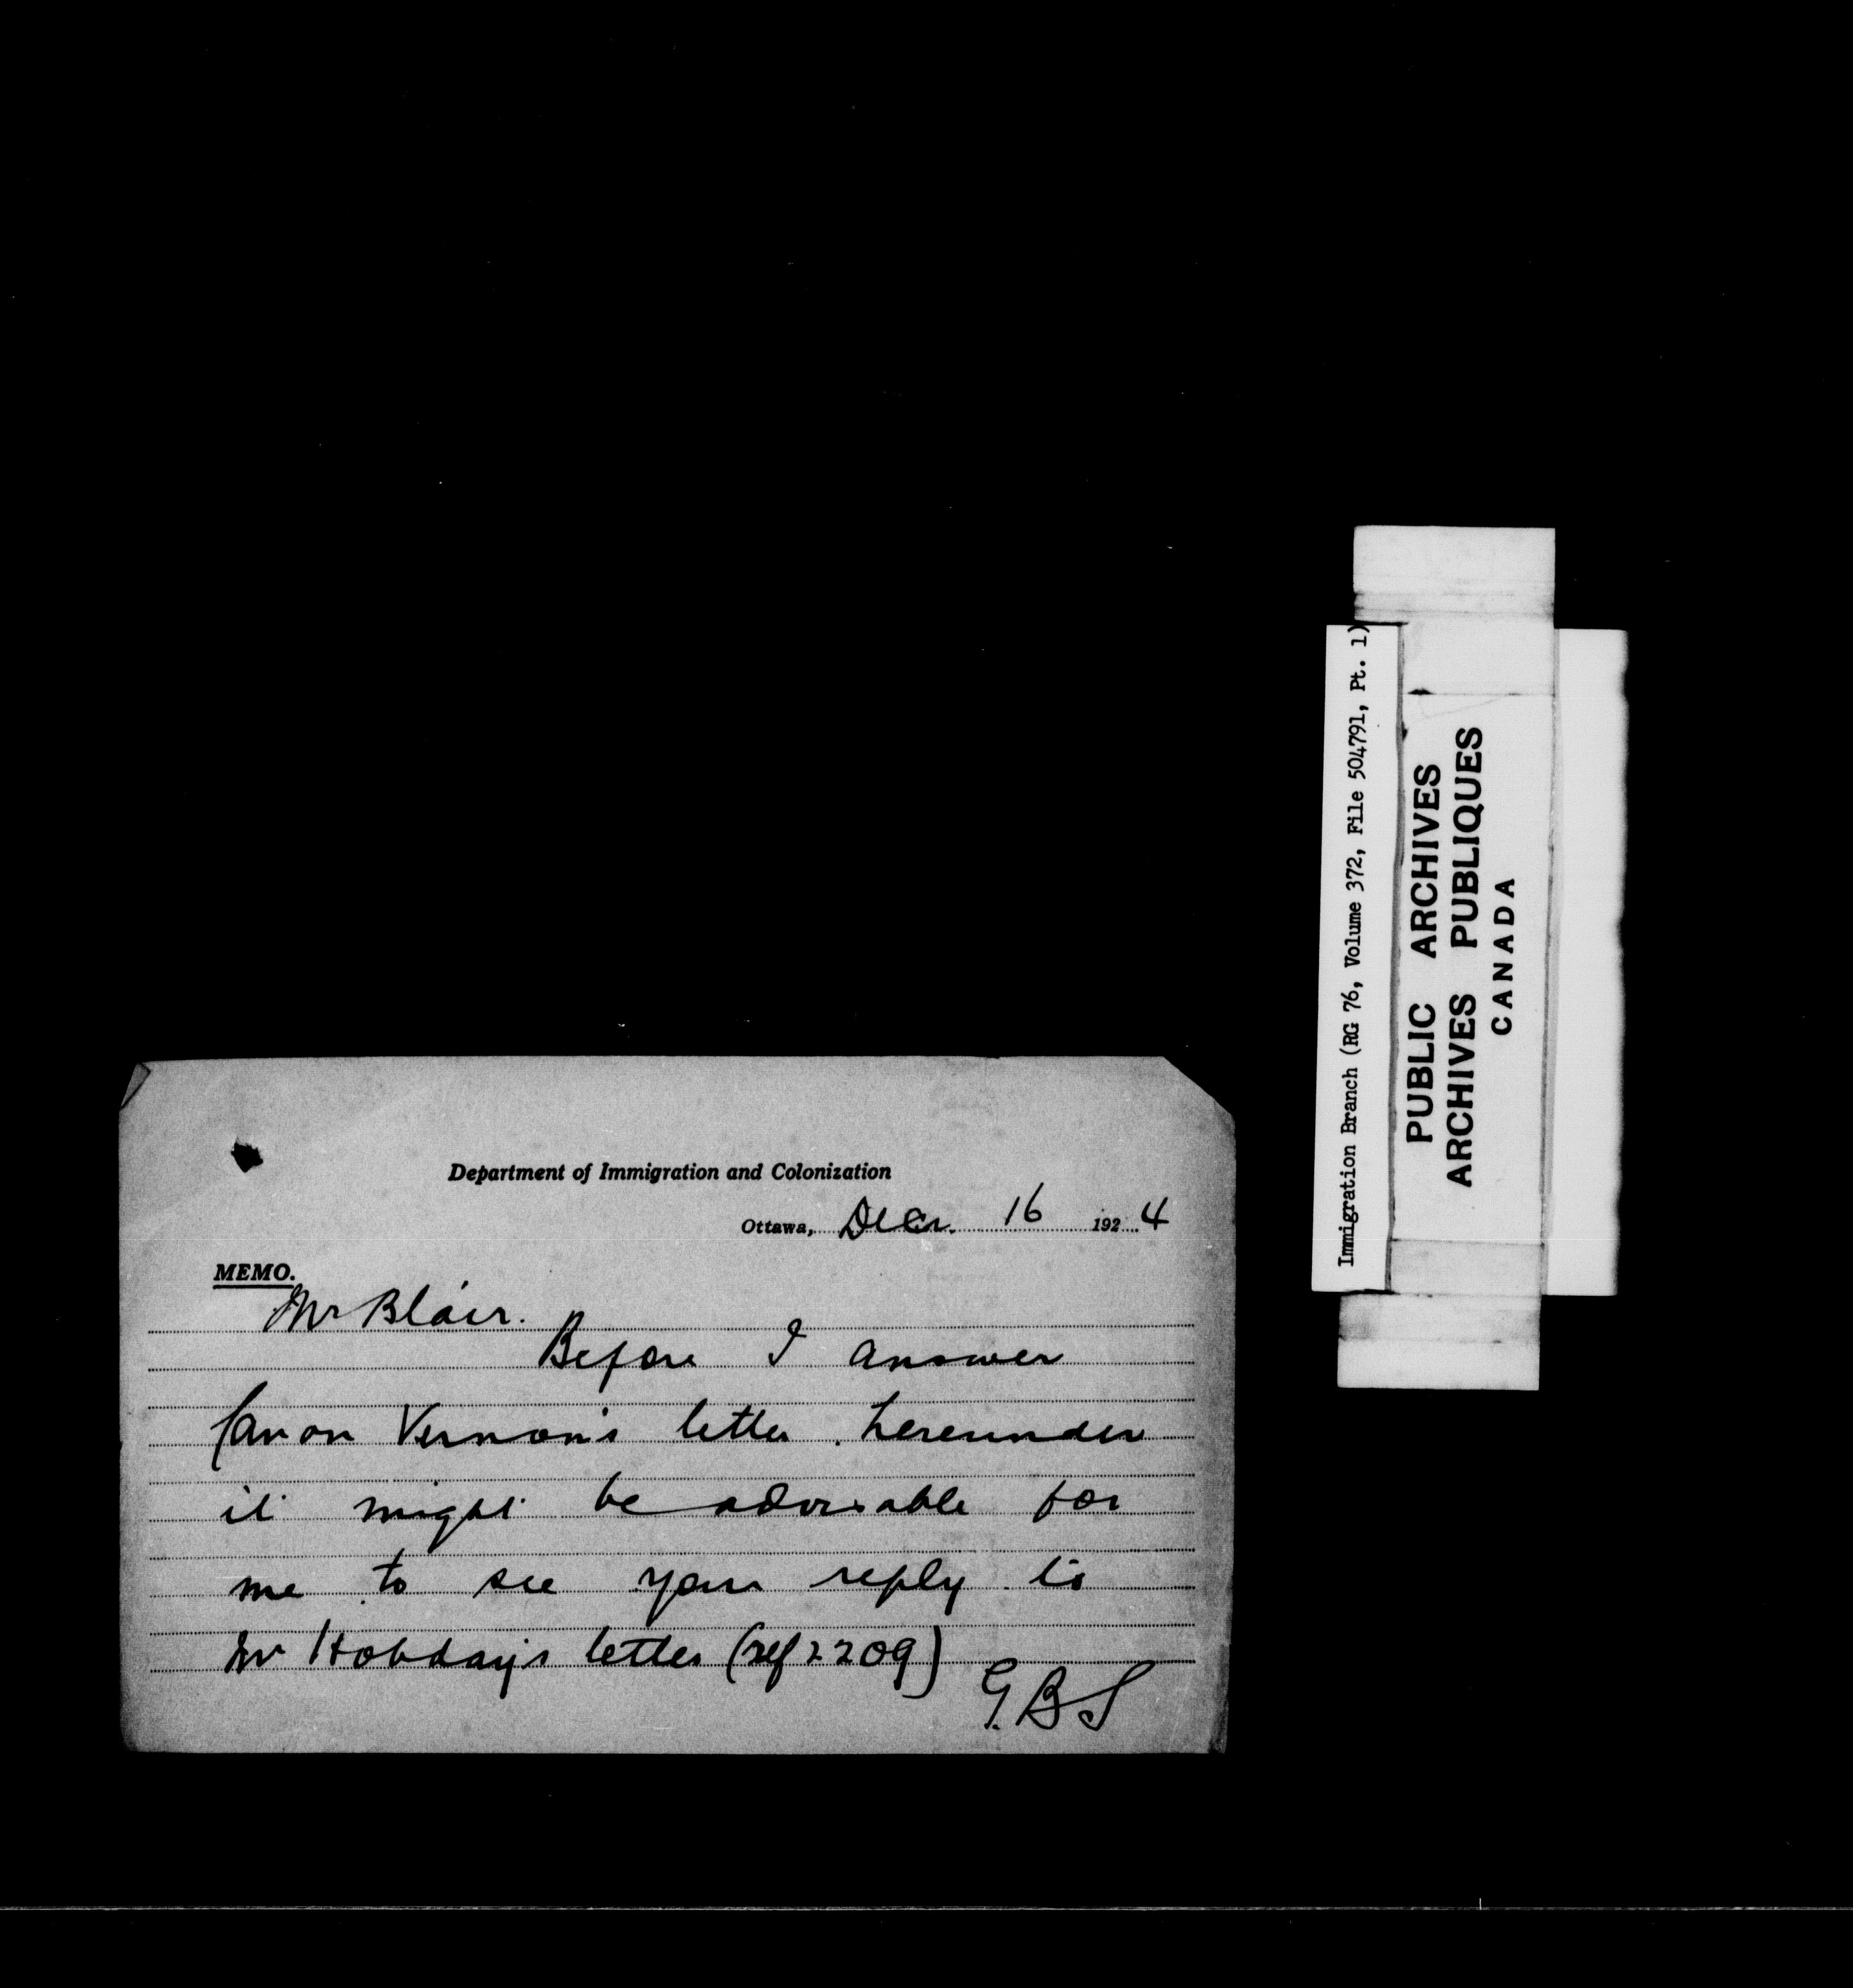 Department of Immigration and Colonization
Ottawa, Decr. 16 1924
MEMO.
Mr Blair.
Before I answer
Canon Vernon's letter hereunder
it might be advisable for
me to see your reply to
Mr Hobday's letter (ref 2209)
G.B.S
Immigration Branch (RG 76, Volume 372, File 504791, Pt. 1)
PUBLIC ARCHIVES
ARCHIVES PUBLIQUES
CANADA